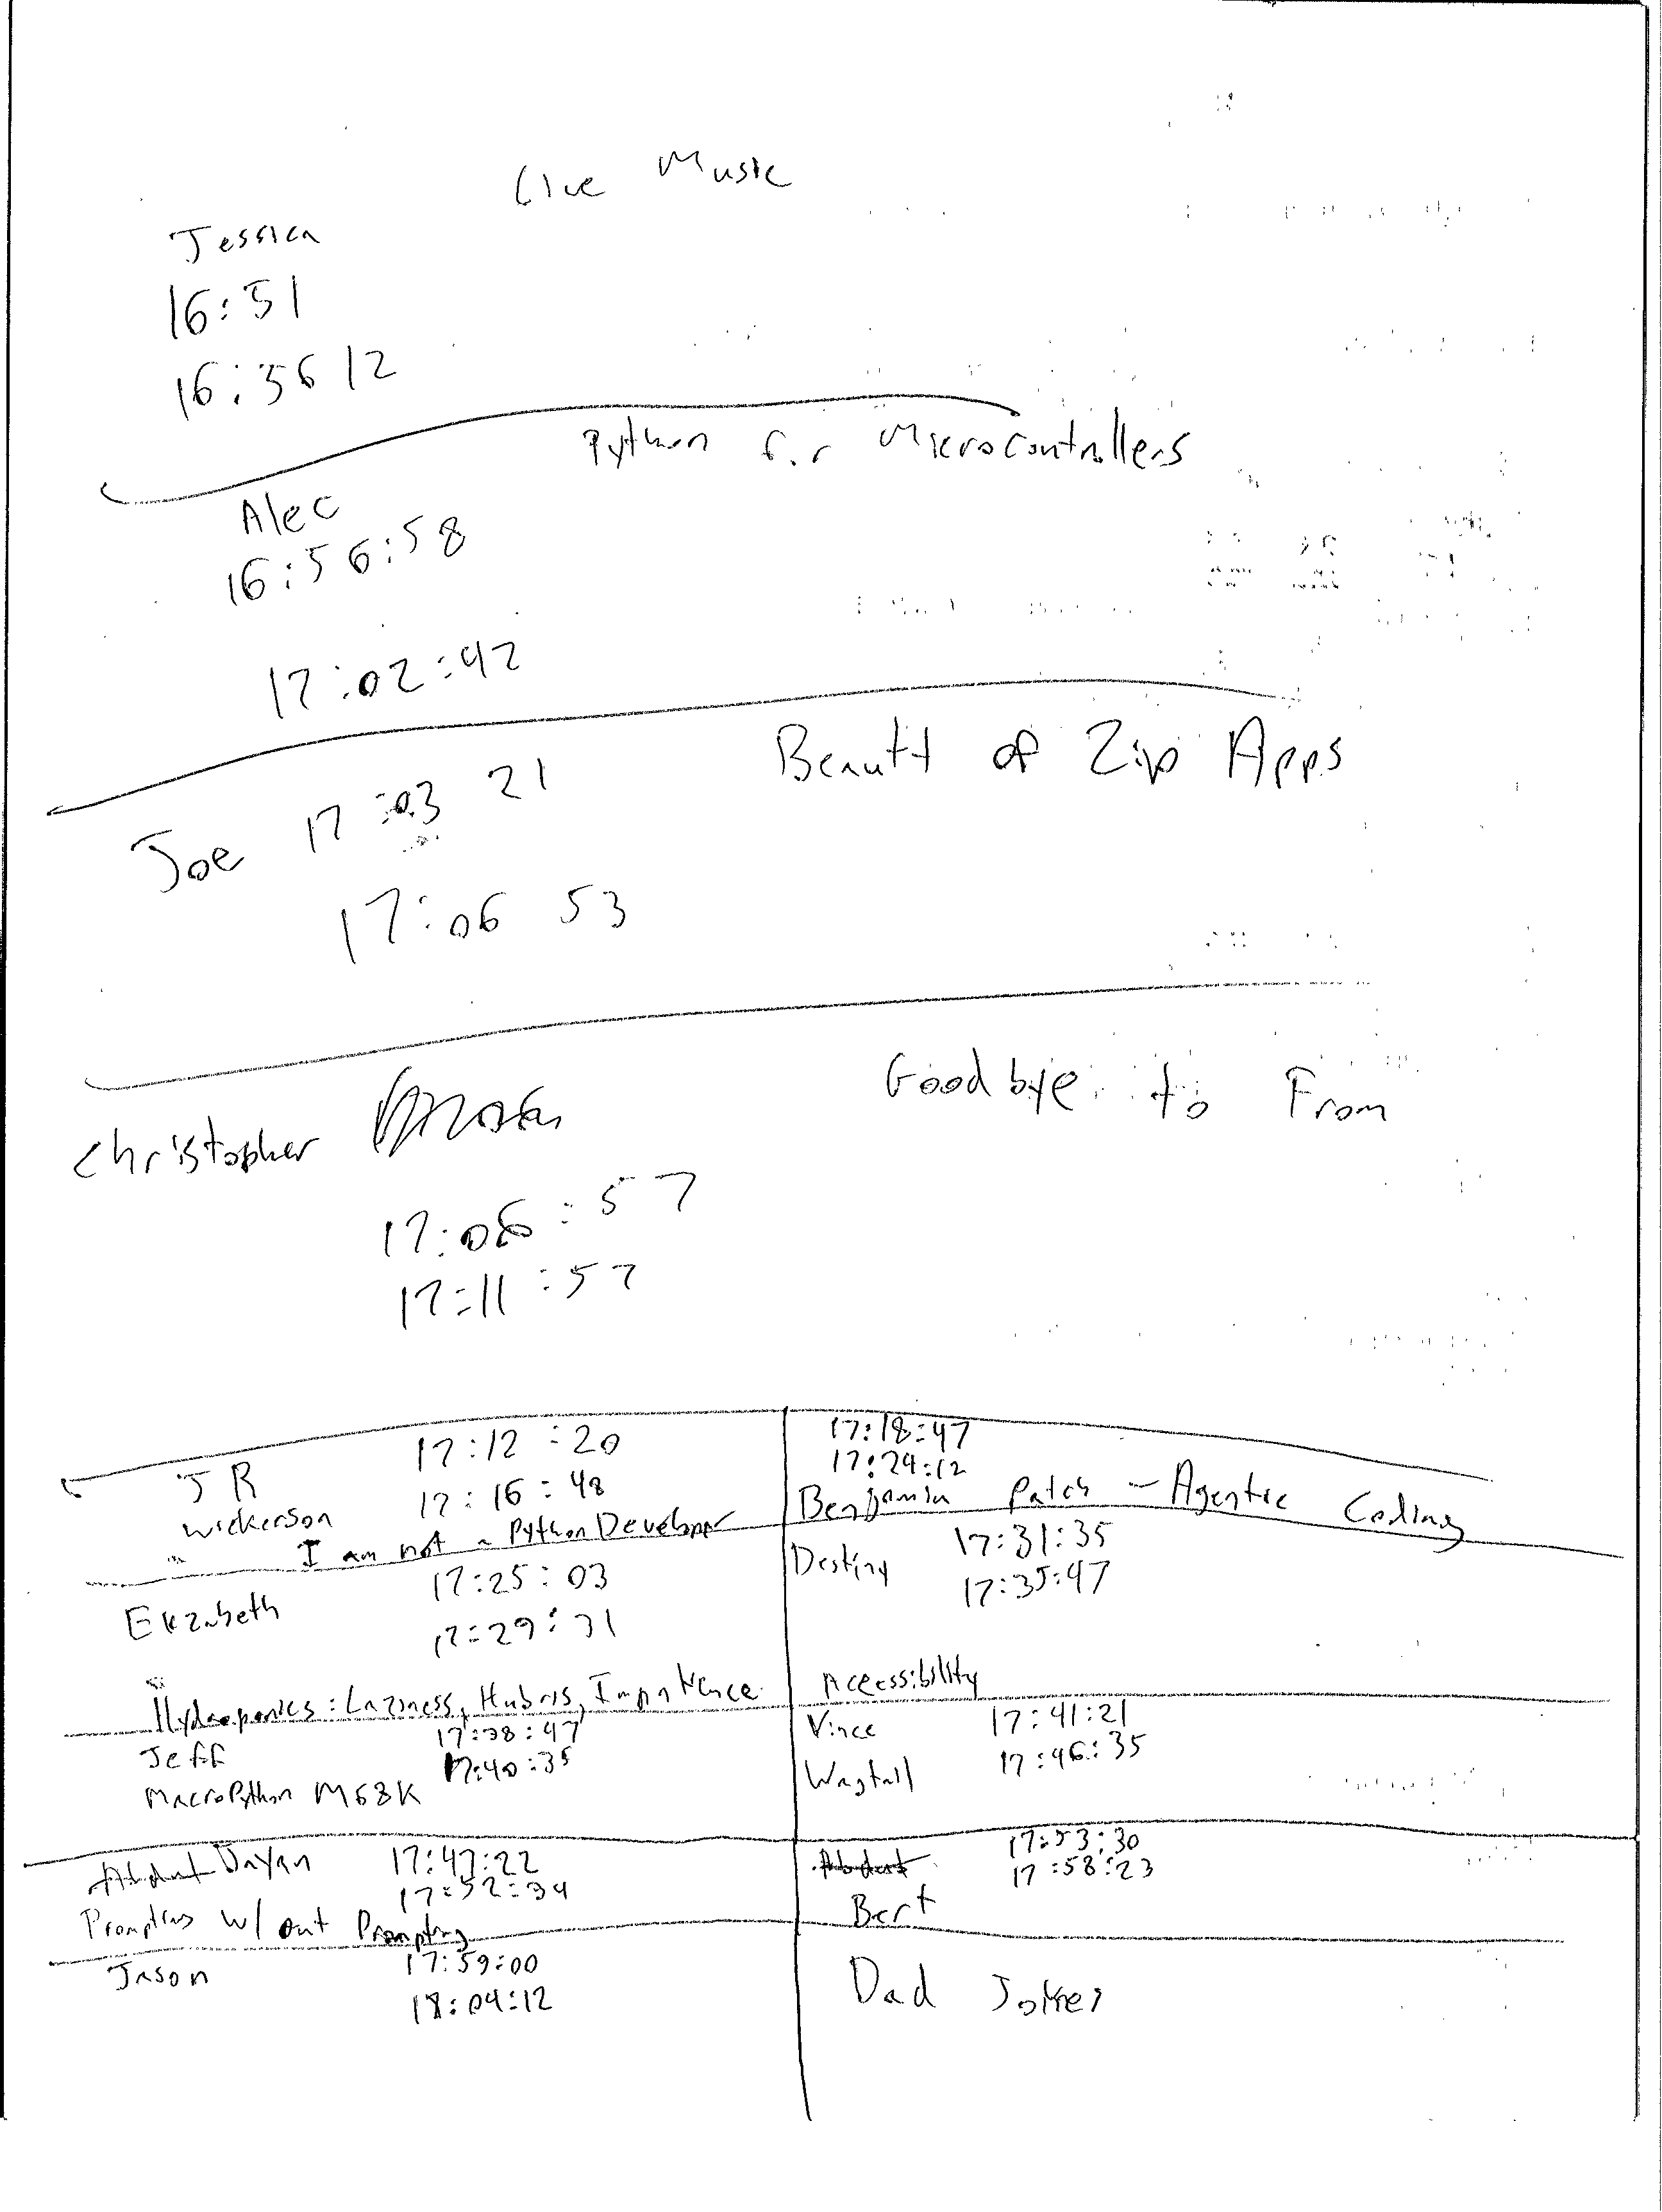 Live Music
Jessica
16:51
16:56 12
Python for Microcontrollers
Alec
16:56:58
17:02:42
Beautt of Zip Apps
Joe 17:03 21
17:06 53
Goodbye to From
Christopher
17:06:57
17:11:57
JR 17:12:20
Wickerson 17:16:48
I am not a Python Developer
17:18:47
17:24:12
Benjamin Patch - Agentic Coding
Elizabeth 17:25:03
17:29:31
Hydroponics: Laziness, Hubris, Impatience
Destiny 17:31:35
17:35:47
Accessibility
Jeff 17:38:47
17:40:35
MacroPython M68K
Vince 17:41:21
Wagtail 17:46:35
Jayan 17:47:22
17:52:34
Prompting w/out Prompting
17:53:30
17:58:23
Bert
Jason 17:59:00
18:04:12
Dad Jokes